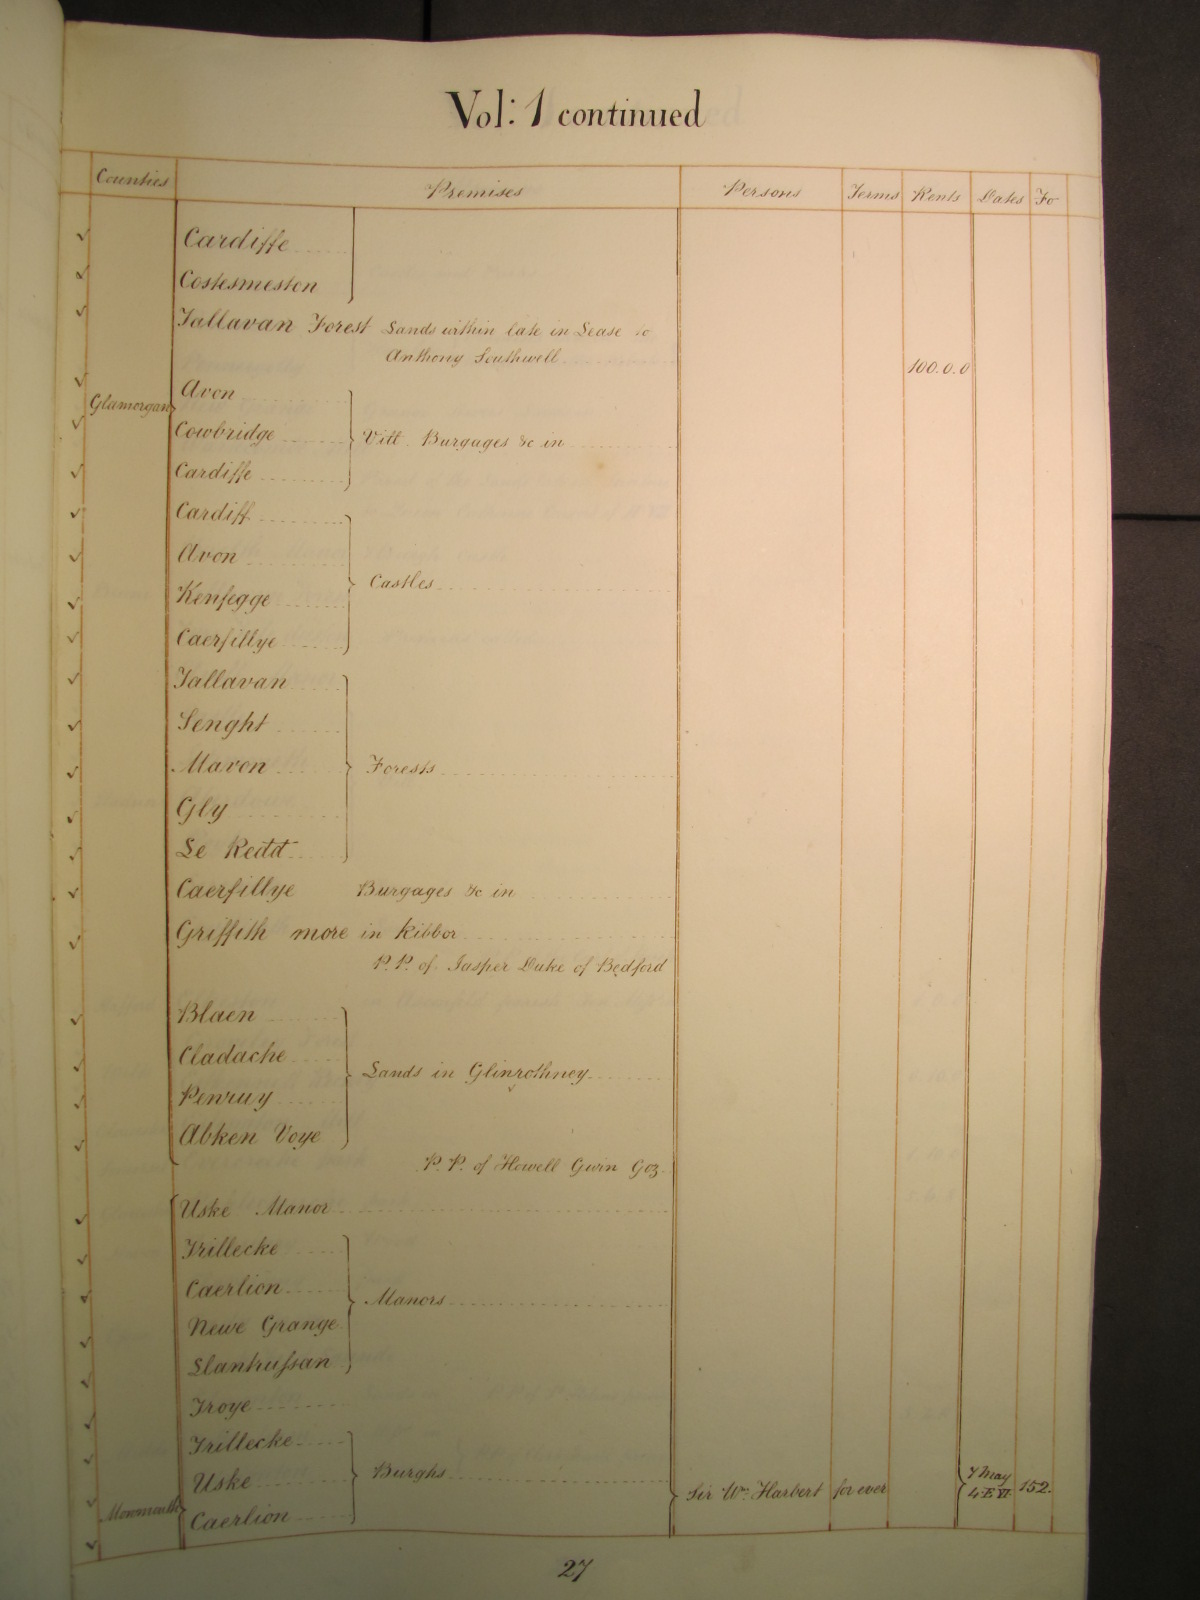 Vol: 1 continued
Counties Premises Persons Terms Rents Dates Fo
Cardiffe
Costesmeston
Tallavan Forest Lands within late in Lease to
Anthony Southwell 100.0.0
Glamorgan
Avon
Cowbridge Vill Burgages &c in
Cardiffe
Cardiff
Avon
Kenfegge Castles
Caerfillye
Tallavan
Senght
Mavon Forests
Gly
Le Redd
Caerfillye Burgages &c in
Griffith more in Kibbor
P.P. of Jasper Duke of Bedford
Blaen
Cladache Lands in Glinrothney
Penruy
Abken Voye
P.P. of Howell Gwin Goz
Uske Manor
Trillecke
Caerlion Manors
Newe Grange
Llantrussan
Troye
Trillecke
Uske Burghs
Monmouth Caerlion Sir Wm. Harbert for ever 7 May 4 E VI 152.
27